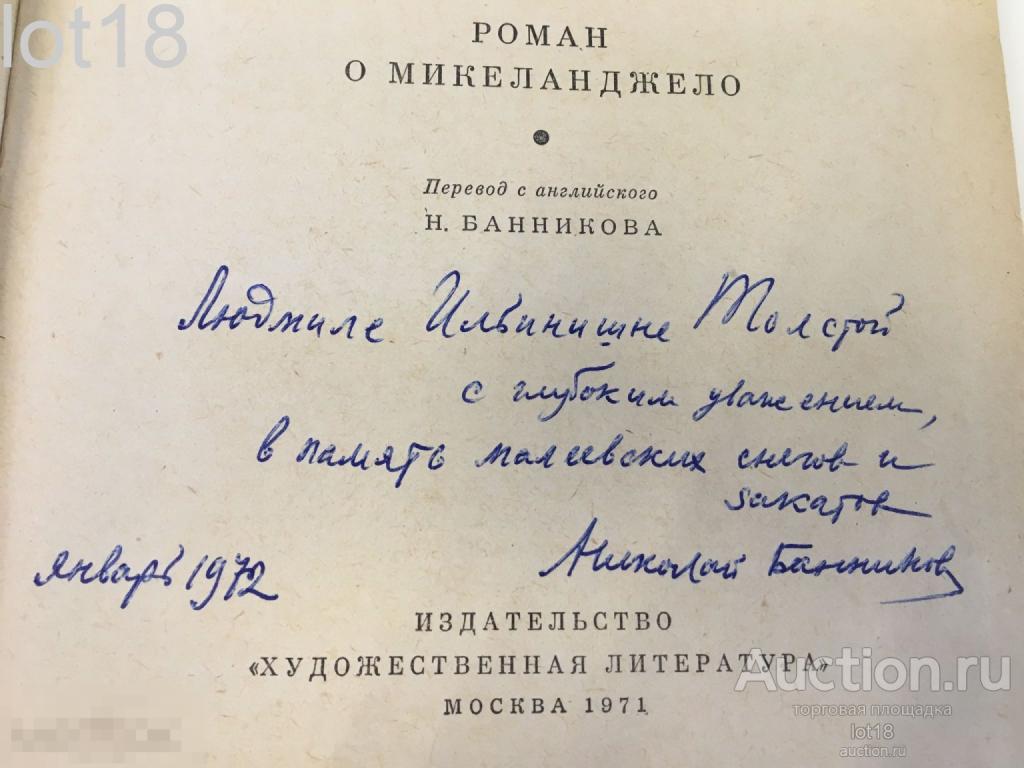 lot18
РОМАН
О МИКЕЛАНДЖЕЛО
Перевод с английского
Н. БАННИКОВА
Людмиле Ильинишне Толстой
с глубоким уважением,
в память малеевских снегов и
закатов
Николай Банников
январь 1972
ИЗДАТЕЛЬСТВО
«ХУДОЖЕСТВЕННАЯ ЛИТЕРАТУРА»
МОСКВА 1971
Auction.ru
торговая площадка
lot18
auction.ru